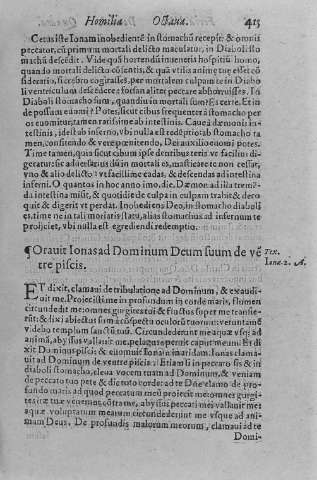 Homilia Octaua. 415
Cetus iste Ionam inobediente in stomachũ recepit: & omnis
peccator, cũ primum mortali delicto maculatur, in Diaboli sto
machũ descẽdit. Vide quã horrendũ inueneris hospitiũ homo,
quando mortali delicto cõsentis, & quã vtilis animę tuę esset cõ
sideratio, si crebro cogitasses, per mortalem culpam te in Diabo
li ventriculum descendere: forsan aliter peccare abhorruisses. In
Diaboli stomacho sum, quandiu in mortali sum? Es certe. Et in
de possum euomi? Potes, sicut cibus frequenter à stomacho per
os euomitur, tamen rarissime ab intestinis. Caue à dæmonis in
testinis, id est ab inferno, vbi nulla est redẽptio: ab stomacho ta
men, confitendo & verè pœnitendo, Dei auxilio euomi potes.
Time tamen, quia sicut cibum ipse dentibus teris vt facilius di-
geratur: sic aduersarius dũ in mortali es, masticare te non cessat,
vno & alio delicto: vt facillime cadas, & descendas ad intestina
inferni. O quantos in hoc anno imo, die, Dæmon ad illa tremẽ-
da intestina misit, & quotidie de culpa in culpam trahit, & dero-
quit & digerit vt perdat. Inobediens Deo, in stomacho diaboli
es, time ne in tali morians statu, alias stomachus ad infernum te
projiciet, vbi nulla est egrediendi redemptio.
¶ Orauit Ionas ad Dominum Deum suum de vẽ
tre piscis.
Tex.
Ione. 2. A.
ET dixit, clamaui de tribulatione ad Dominum, & exaudi-
uit me. Proiecisti me in profundum in corde maris, flumen
circundedit me, omnes gurgites tui & fluctus super me transie-
rũt: & dixi abiectus sum à cõspectu oculorũ tuorum: verũtamẽ
videbo templum sanctũ tuũ. Circundederunt me aquæ vsq; ad
animã, abyssus vallauit me, pelagus operuit caput meum: Et di
xit Dominus pisci: & euomuit Ionam in aridam. Ionas clama-
uit ad Dominum de ventre piscis: Etiam si in peccato sis & in
diaboli stomacho, eleua vocem tuam ad Dominum, & veniam
de peccato tuo pete & dic toto corde: ad te Dñe clamo de pro-
fundo maris: ad quod peccatum meũ proiecit me: omnes gurgi-
tes iræ tuæ venerunt cõtra me, abyssus peccati mei vallauit me:
aquæ voluptatum mearum circundederunt me vsque ad ani-
mam Deus. De profundis malorum meorum, clamaui ad te
Domi-